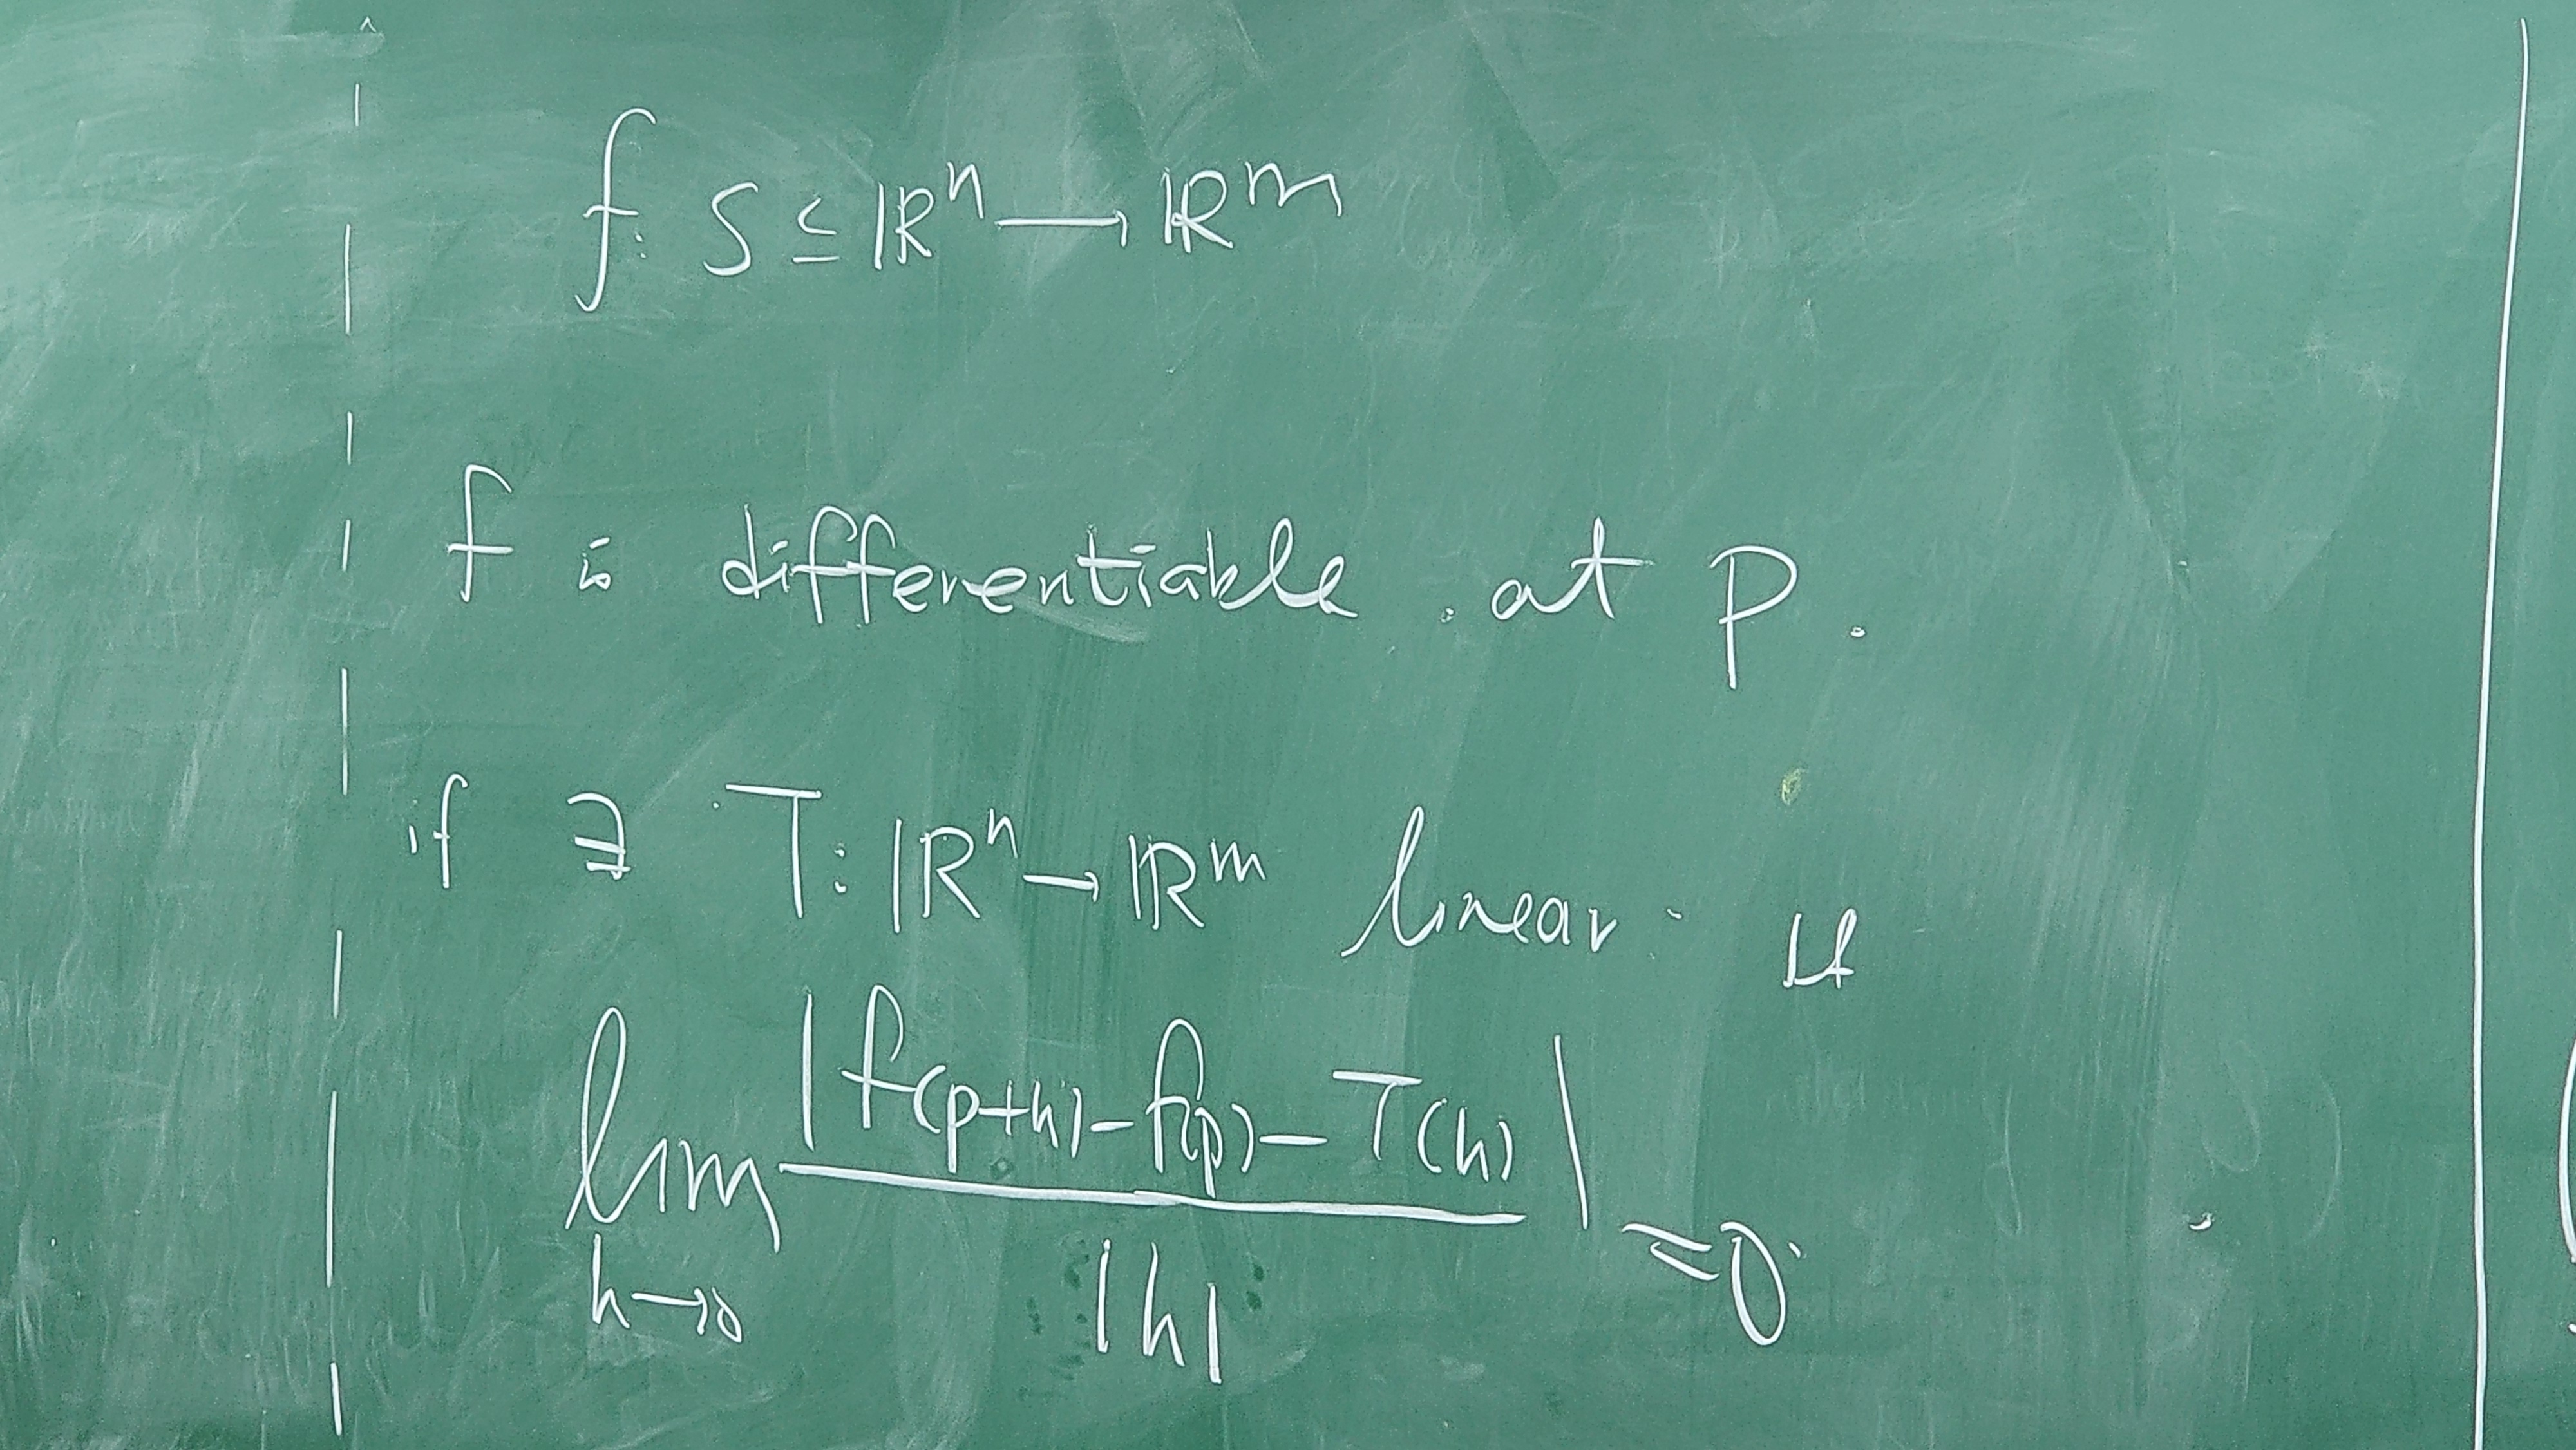 f: S ⊆ ℝⁿ → ℝᵐ
f is differentiable at p.
if ∃ T: ℝⁿ → ℝᵐ linear
lim h→0 |f(p+h) - f(p) - T(h)| / |h| = 0